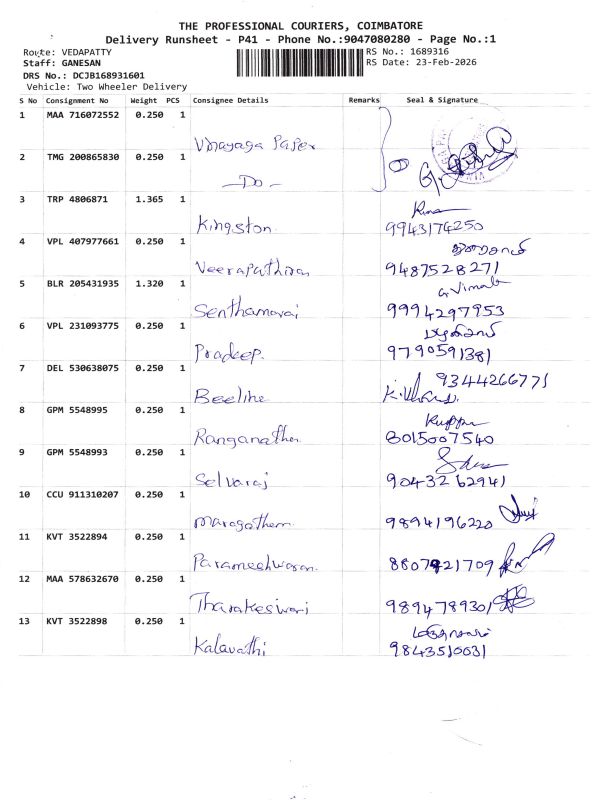 THE PROFESSIONAL COURIERS, COIMBATORE
Delivery Runsheet - P41 - Phone No.:9047080280 - Page No.:1
Route: VEDAPATTY RS No.: 1689316
Staff: GANESAN RS Date: 23-Feb-2026
DRS No.: DCJB168931601
Vehicle: Two Wheeler Delivery
S No Consignment No Weight PCS Consignee Details Remarks Seal & Signature
1 MAA 716072552 0.250 1
Vinayaga Paper
2 TMG 200865830 0.250 1
-Do-
3 TRP 4806871 1.365 1
Kingston 9943174250
4 VPL 407977661 0.250 1
Veerapathiran 9487528271
5 BLR 205431935 1.320 1 G. Vimala
Senthamarai 9994297953
6 VPL 231093775 0.250 1
Pradeep. 9790591381
7 DEL 530638075 0.250 1 9344266771
Beeline
8 GPM 5548995 0.250 1
Ranganathan 8015007540
9 GPM 5548993 0.250 1
Selvaraj 9043262941
10 CCU 911310207 0.250 1
Maragatham 9894196220
11 KVT 3522894 0.250 1
Parameshwaran 8807421709
12 MAA 578632670 0.250 1
Tharakeswari 9894789301
13 KVT 3522898 0.250 1
Kalavathi 9843510031